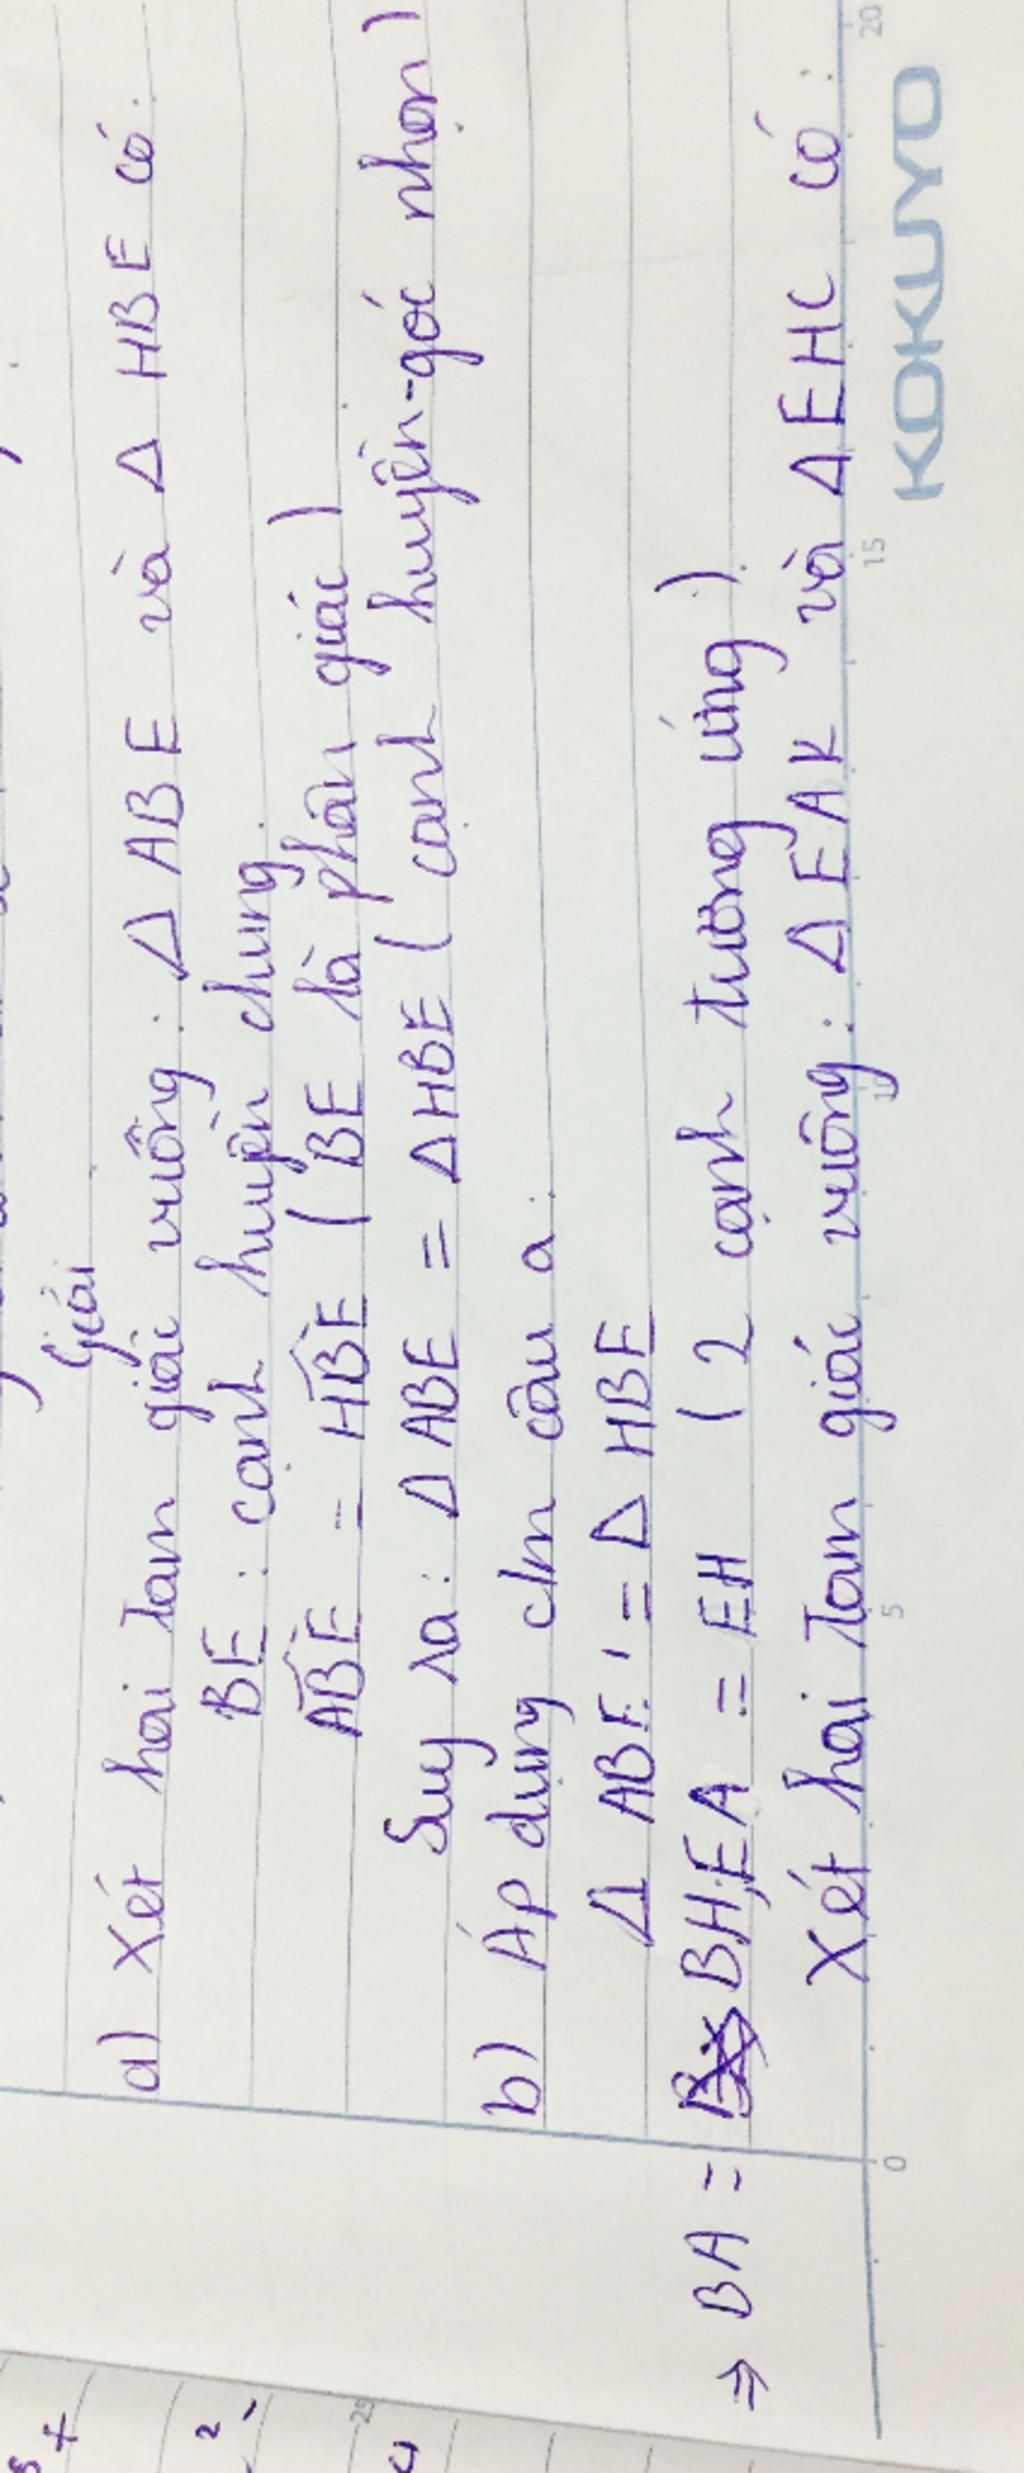 Giải
a) Xét hai tam giác vuông: Δ ABE và Δ HBE có:
BE: cạnh huyền chung
ABE = HBE (BE là phân giác)
Suy ra: Δ ABE = Δ HBE (cạnh huyền-góc nhọn)
b) Áp dụng c/m câu a:
Δ ABE = Δ HBE
⇒ BA = BH, EA = EH (2 cạnh tương ứng)
Xét hai tam giác vuông: Δ EAK và Δ EHC có:
0 5 10 15 20
KOKUYO
25